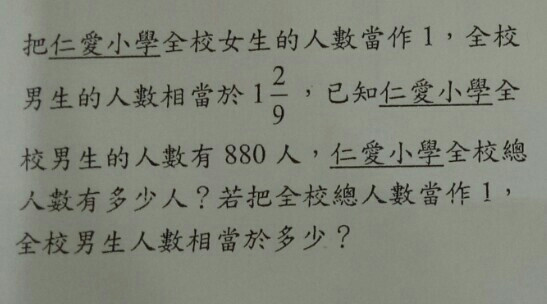 把仁愛小學全校女生的人數當作 1，全校
男生的人數相當於 1 2/9，已知仁愛小學全
校男生的人數有 880 人，仁愛小學全校總
人數有多少人？若把全校總人數當作 1，
全校男生人數相當於多少？